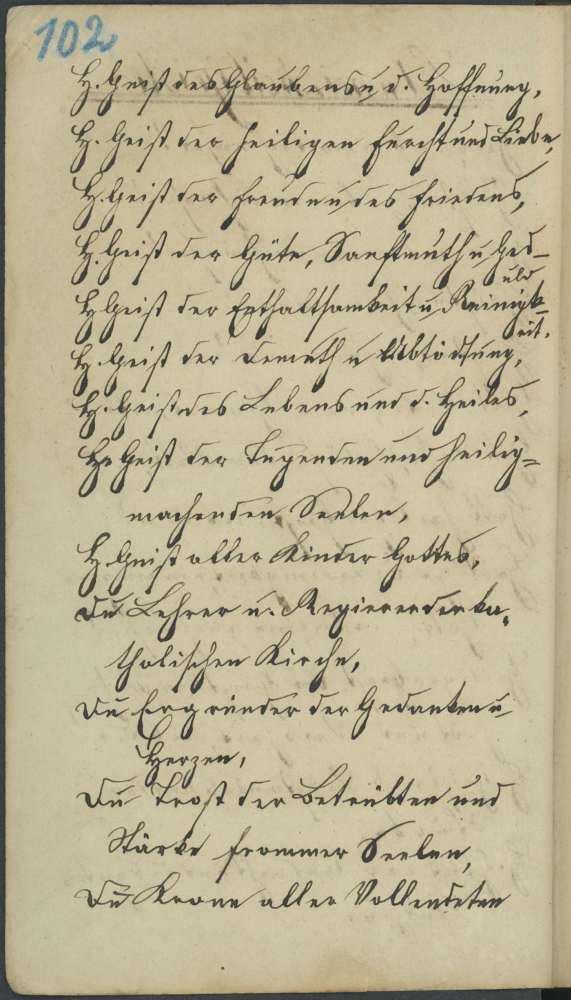 102
H. Geist des Glaubens u. d. Hoffnung,
H. Geist der heiligen Furcht und Liebe,
H. Geist der Freude u. des Friedens,
H. Geist der Güte, Sanftmuth u. Ged-
uld
H. Geist der Enthaltsamkeit u. Reinigk-
eit.
H. Geist der Demuth u. Abtödtung,
H. Geist des Lebens und d. Heiles,
H. Geist der Tugenden und heilig-
machenden Seelen,
H. Geist aller Kinder Gottes,
Du Lehrer u. Regierer der ka-
tholischen Kirche,
Du Ergründer der Gedanken u.
Herzen,
Du Trost der Betrübten und
Stärke frommer Seelen,
Du Krone aller Vollendeten